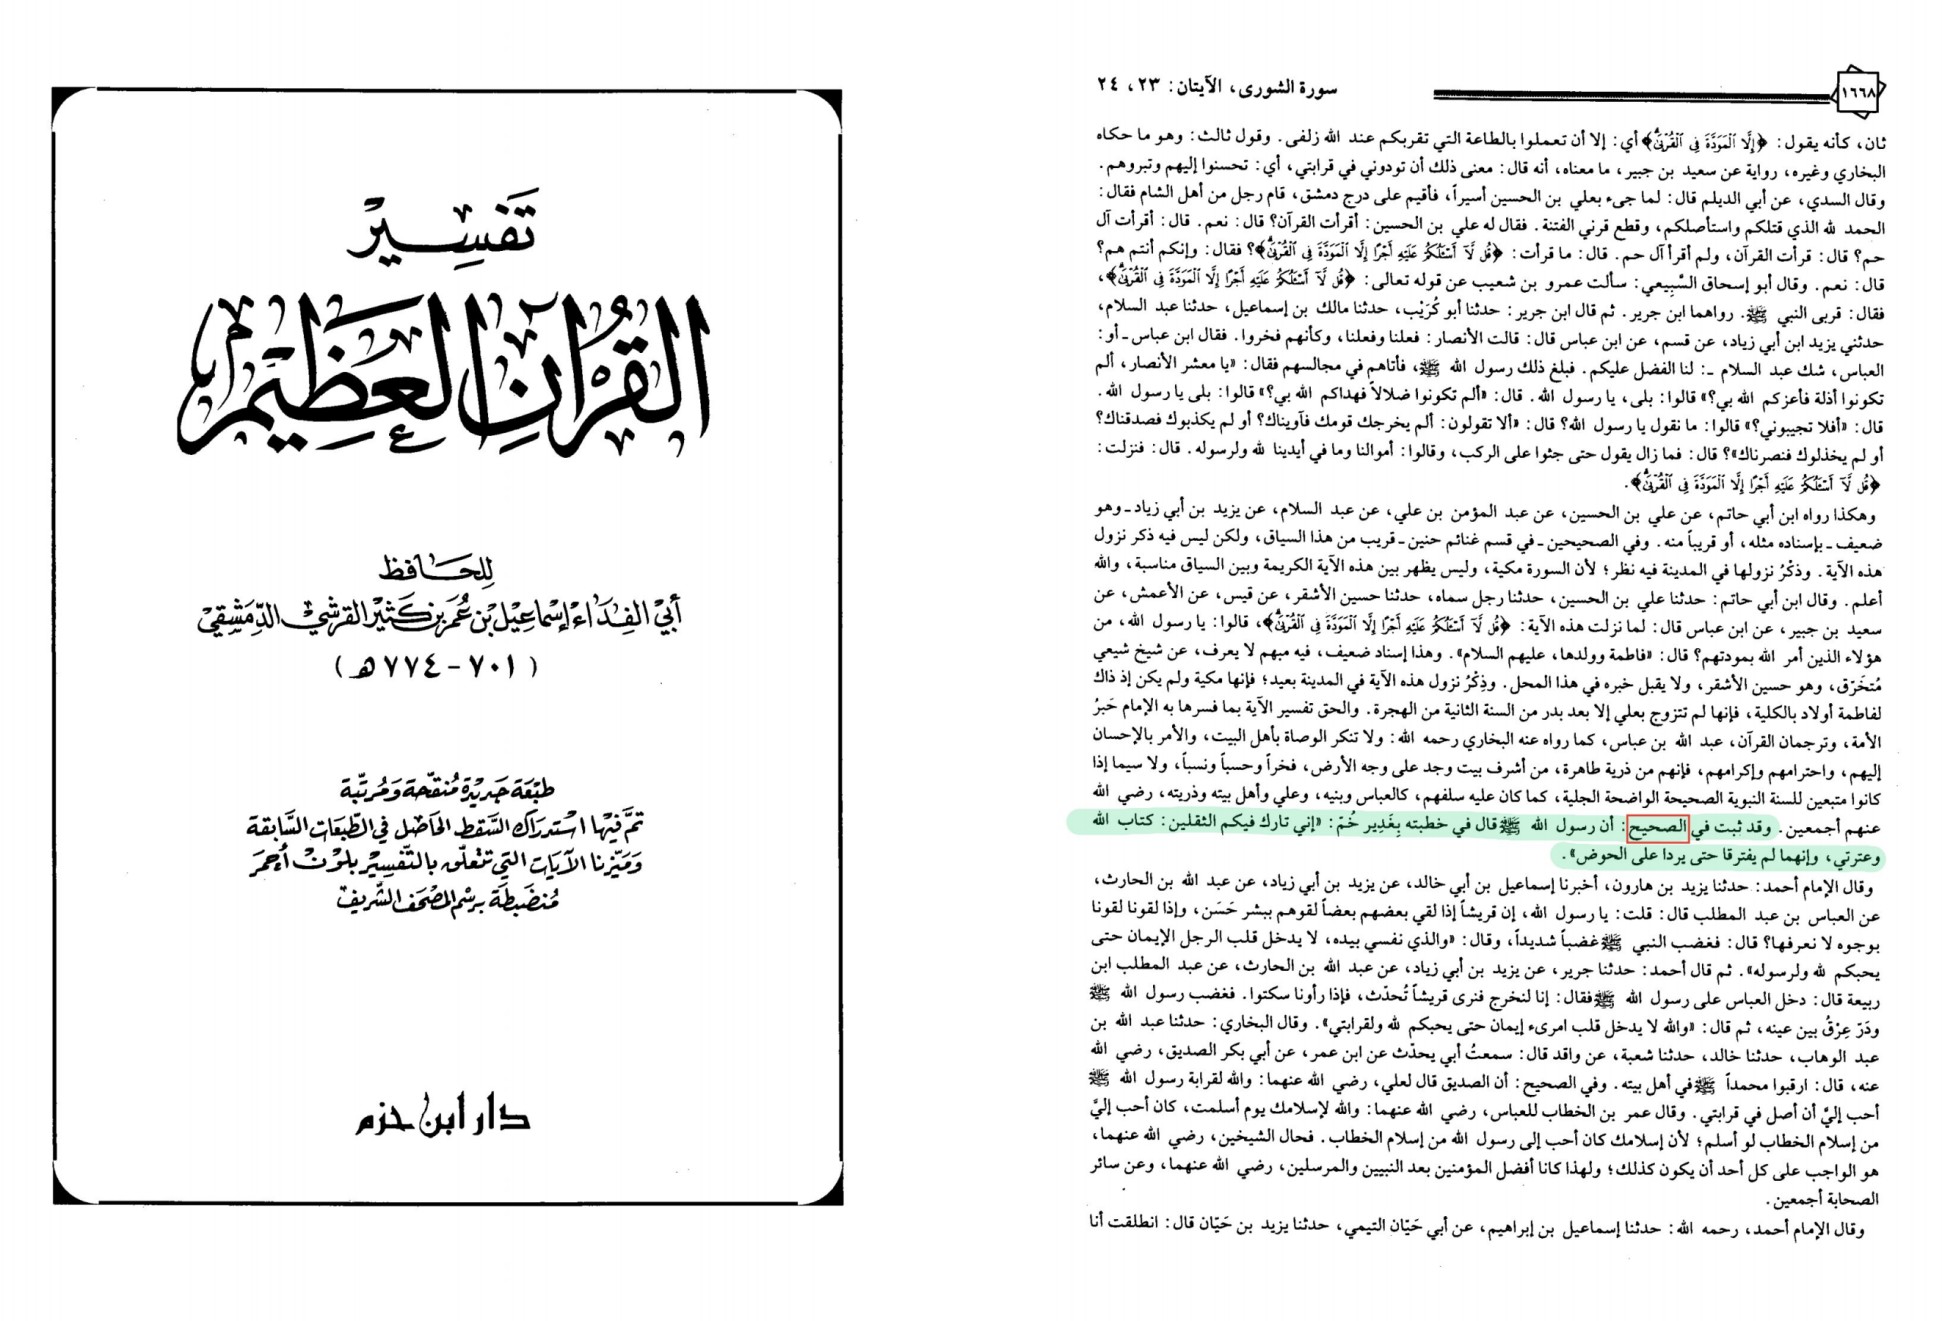 تفسير
القرآن العظيم
للحافظ
أبي الفداء إسماعيل بن عمر بن كثير القرشي الدمشقي
(٧٠١ - ٧٧٤ هـ)
طبعة جديدة منقحة ومرتبة
تم فيها استدراك السقط الحاصل في الطبعات السابقة
وميزنا الآيات التي تتعلق بالتفسير بلون أحمر
منضبطة برسم المصحف الشريف
دار ابن حزم
١٦٦٨
سورة الشورى، الآيتان: ٢٣، ٢٤
ثان، كأنه يقول: ﴿إِلَّا ٱلْمَوَدَّةَ فِى ٱلْقُرْبَىٰ﴾ أي: إلا أن تعملوا بالطاعة التي تقربكم عند الله زلفى. وقول ثالث: وهو ما حكاه
البخاري وغيره، رواية عن سعيد بن جبير، ما معناه، أنه قال: معنى ذلك أن تودوني في قرابتي، أي: تحسنوا إليهم وتبروهم.
وقال السدي، عن أبي الديلم قال: لما جيء بعلي بن الحسين أسيراً، فأقيم على درج دمشق، قام رجل من أهل الشام فقال:
الحمد لله الذي قتلكم واستأصلكم، وقطع قرني الفتنة. فقال له علي بن الحسين: أقرأت القرآن؟ قال: نعم. قال: أقرأت آل
حم؟ قال: قرأت القرآن، ولم أقرأ آل حم. قال: ما قرأت: ﴿قُل لَّآ أَسْـَٔلُكُمْ عَلَيْهِ أَجْرًا إِلَّا ٱلْمَوَدَّةَ فِى ٱلْقُرْبَىٰ﴾؟ فقال: وإنكم أنتم هم؟
قال: نعم. وقال أبو إسحاق السَّبِيعي: سألت عمرو بن شعيب عن قوله تعالى: ﴿قُل لَّآ أَسْـَٔلُكُمْ عَلَيْهِ أَجْرًا إِلَّا ٱلْمَوَدَّةَ فِى ٱلْقُرْبَىٰ﴾،
فقال: قربى النبي ﷺ. رواهما ابن جرير. ثم قال ابن جرير: حدثنا أبو كُرَيْب، حدثنا مالك بن إسماعيل، حدثنا عبد السلام،
حدثني يزيد ابن أبي زياد، عن قسم، عن ابن عباس قال: قالت الأنصار: فعلنا وفعلنا، وكأنهم فخروا. فقال ابن عباس ـ أو:
العباس، شك عبد السلام ـ: لنا الفضل عليكم. فبلغ ذلك رسول الله ﷺ، فأتاهم في مجالسهم فقال: «يا معشر الأنصار، ألم
تكونوا أذلة فأعزكم الله بي؟» قالوا: بلى، يا رسول الله. قال: «ألم تكونوا ضلالاً فهداكم الله بي؟» قالوا: بلى يا رسول الله.
قال: «أفلا تجيبوني؟» قالوا: ما نقول يا رسول الله؟ قال: «ألا تقولون: ألم يخرجك قومك فآويناك؟ أو لم يكذبوك فصدقناك؟
أو لم يخذلوك فنصرناك»؟ قال: فما زال يقول حتى جثوا على الركب، وقالوا: أموالنا وما في أيدينا لله ولرسوله. قال: فنزلت:
﴿قُل لَّآ أَسْـَٔلُكُمْ عَلَيْهِ أَجْرًا إِلَّا ٱلْمَوَدَّةَ فِى ٱلْقُرْبَىٰ﴾.
وهكذا رواه ابن أبي حاتم، عن علي بن الحسين، عن عبد المؤمن بن علي، عن عبد السلام، عن يزيد بن أبي زياد ـ وهو
ضعيف ـ بإسناده مثله، أو قريباً منه. وفي الصحيحين ـ في قسم غنائم حنين ـ قريب من هذا السياق، ولكن ليس فيه ذكر نزول
هذه الآية. وذكْرُ نزولها في المدينة فيه نظر؛ لأن السورة مكية، وليس يظهر بين هذه الآية الكريمة وبين السياق مناسبة، والله
أعلم. وقال ابن أبي حاتم: حدثنا علي بن الحسين، حدثنا رجل سماه، حدثنا حسين الأشقر، عن قيس، عن الأعمش، عن
سعيد بن جبير، عن ابن عباس قال: لما نزلت هذه الآية: ﴿قُل لَّآ أَسْـَٔلُكُمْ عَلَيْهِ أَجْرًا إِلَّا ٱلْمَوَدَّةَ فِى ٱلْقُرْبَىٰ﴾، قالوا: يا رسول الله، من
هؤلاء الذين أمر الله بمودتهم؟ قال: «فاطمة وولدها، عليهم السلام». وهذا إسناد ضعيف، فيه مبهم لا يعرف، عن شيخ شيعي
مُتخَرّق، وهو حسين الأشقر، ولا يقبل خبره في هذا المحل. وذِكْرُ نزول هذه الآية في المدينة بعيد؛ فإنها مكية ولم يكن إذ ذاك
لفاطمة أولاد بالكلية، فإنها لم تتزوج بعلي إلا بعد بدر من السنة الثانية من الهجرة. والحق تفسير الآية بما فسرها به الإمام حَبرُ
الأمة، وترجمان القرآن، عبد الله بن عباس، كما رواه عنه البخاري رحمه الله: ولا تنكر الوصاة بأهل البيت، والأمر بالإحسان
إليهم، واحترامهم وإكرامهم، فإنهم من ذرية طاهرة، من أشرف بيت وجد على وجه الأرض، فخراً وحسباً ونسباً، ولا سيما إذا
كانوا متبعين للسنة النبوية الصحيحة الواضحة الجلية، كما كان عليه سلفهم، كالعباس وبنيه، وعلي وأهل بيته وذريته، رضي الله
عنهم أجمعين. وقد ثبت في الصحيح: أن رسول الله ﷺ قال في خطبته بِغَدِير خُمّ: «إني تارك فيكم الثقلين: كتاب الله
وعترتي، وإنهما لم يفترقا حتى يردا على الحوض».
وقال الإمام أحمد: حدثنا يزيد بن هارون، أخبرنا إسماعيل بن أبي خالد، عن يزيد بن أبي زياد، عن عبد الله بن الحارث،
عن العباس بن عبد المطلب قال: قلت: يا رسول الله، إن قريشاً إذا لقي بعضهم بعضاً لقوهم ببشر حَسَن، وإذا لقونا لقونا
بوجوه لا نعرفها؟ قال: فغضب النبي ﷺ غضباً شديداً، وقال: «والذي نفسي بيده، لا يدخل قلب الرجل الإيمان حتى
يحبكم لله ولرسوله». ثم قال أحمد: حدثنا جرير، عن يزيد بن أبي زياد، عن عبد الله بن الحارث، عن عبد المطلب ابن
ربيعة قال: دخل العباس على رسول الله ﷺ فقال: إنا لنخرج فنرى قريشاً تُحدّث، فإذا رأونا سكتوا. فغضب رسول الله ﷺ
ودَرّ عِرْقُ بين عينه، ثم قال: «والله لا يدخل قلب امرىء إيمان حتى يحبكم لله ولقرابتي». وقال البخاري: حدثنا عبد الله بن
عبد الوهاب، حدثنا خالد، حدثنا شعبة، عن واقد قال: سمعتُ أبي يحدّث عن ابن عمر، عن أبي بكر الصديق، رضي الله
عنه، قال: ارقبوا محمداً ﷺ في أهل بيته. وفي الصحيح: أن الصديق قال لعلي، رضي الله عنهما: والله لقرابة رسول الله ﷺ
أحب إليَّ أن أصل في قرابتي. وقال عمر بن الخطاب للعباس، رضي الله عنهما: والله لإسلامك يوم أسلمت، كان أحب إليَّ
من إسلام الخطاب لو أسلم؛ لأن إسلامك كان أحب إلى رسول الله من إسلام الخطاب. فحال الشيخين، رضي الله عنهما،
هو الواجب على كل أحد أن يكون كذلك؛ ولهذا كانا أفضل المؤمنين بعد النبيين والمرسلين، رضي الله عنهما، وعن سائر
الصحابة أجمعين.
وقال الإمام أحمد، رحمه الله: حدثنا إسماعيل بن إبراهيم، عن أبي حَيّان التيمي، حدثنا يزيد بن حَيّان قال: انطلقت أنا